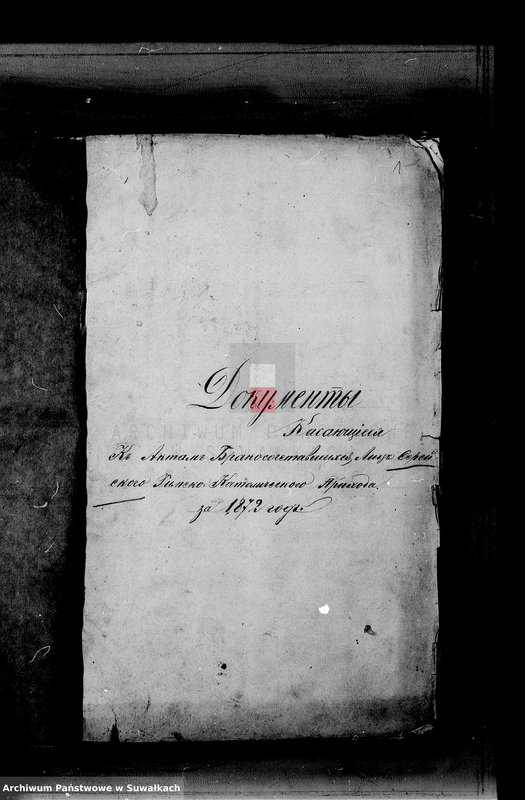 1
Документы
Касающіеся
Къ Актамъ Бракосочетавшихся Лицъ Серей
скаго Римско Католическаго Прихода
за 1872 годъ.
ARCHIWUM
Archiwum Państwowe w Suwałkach